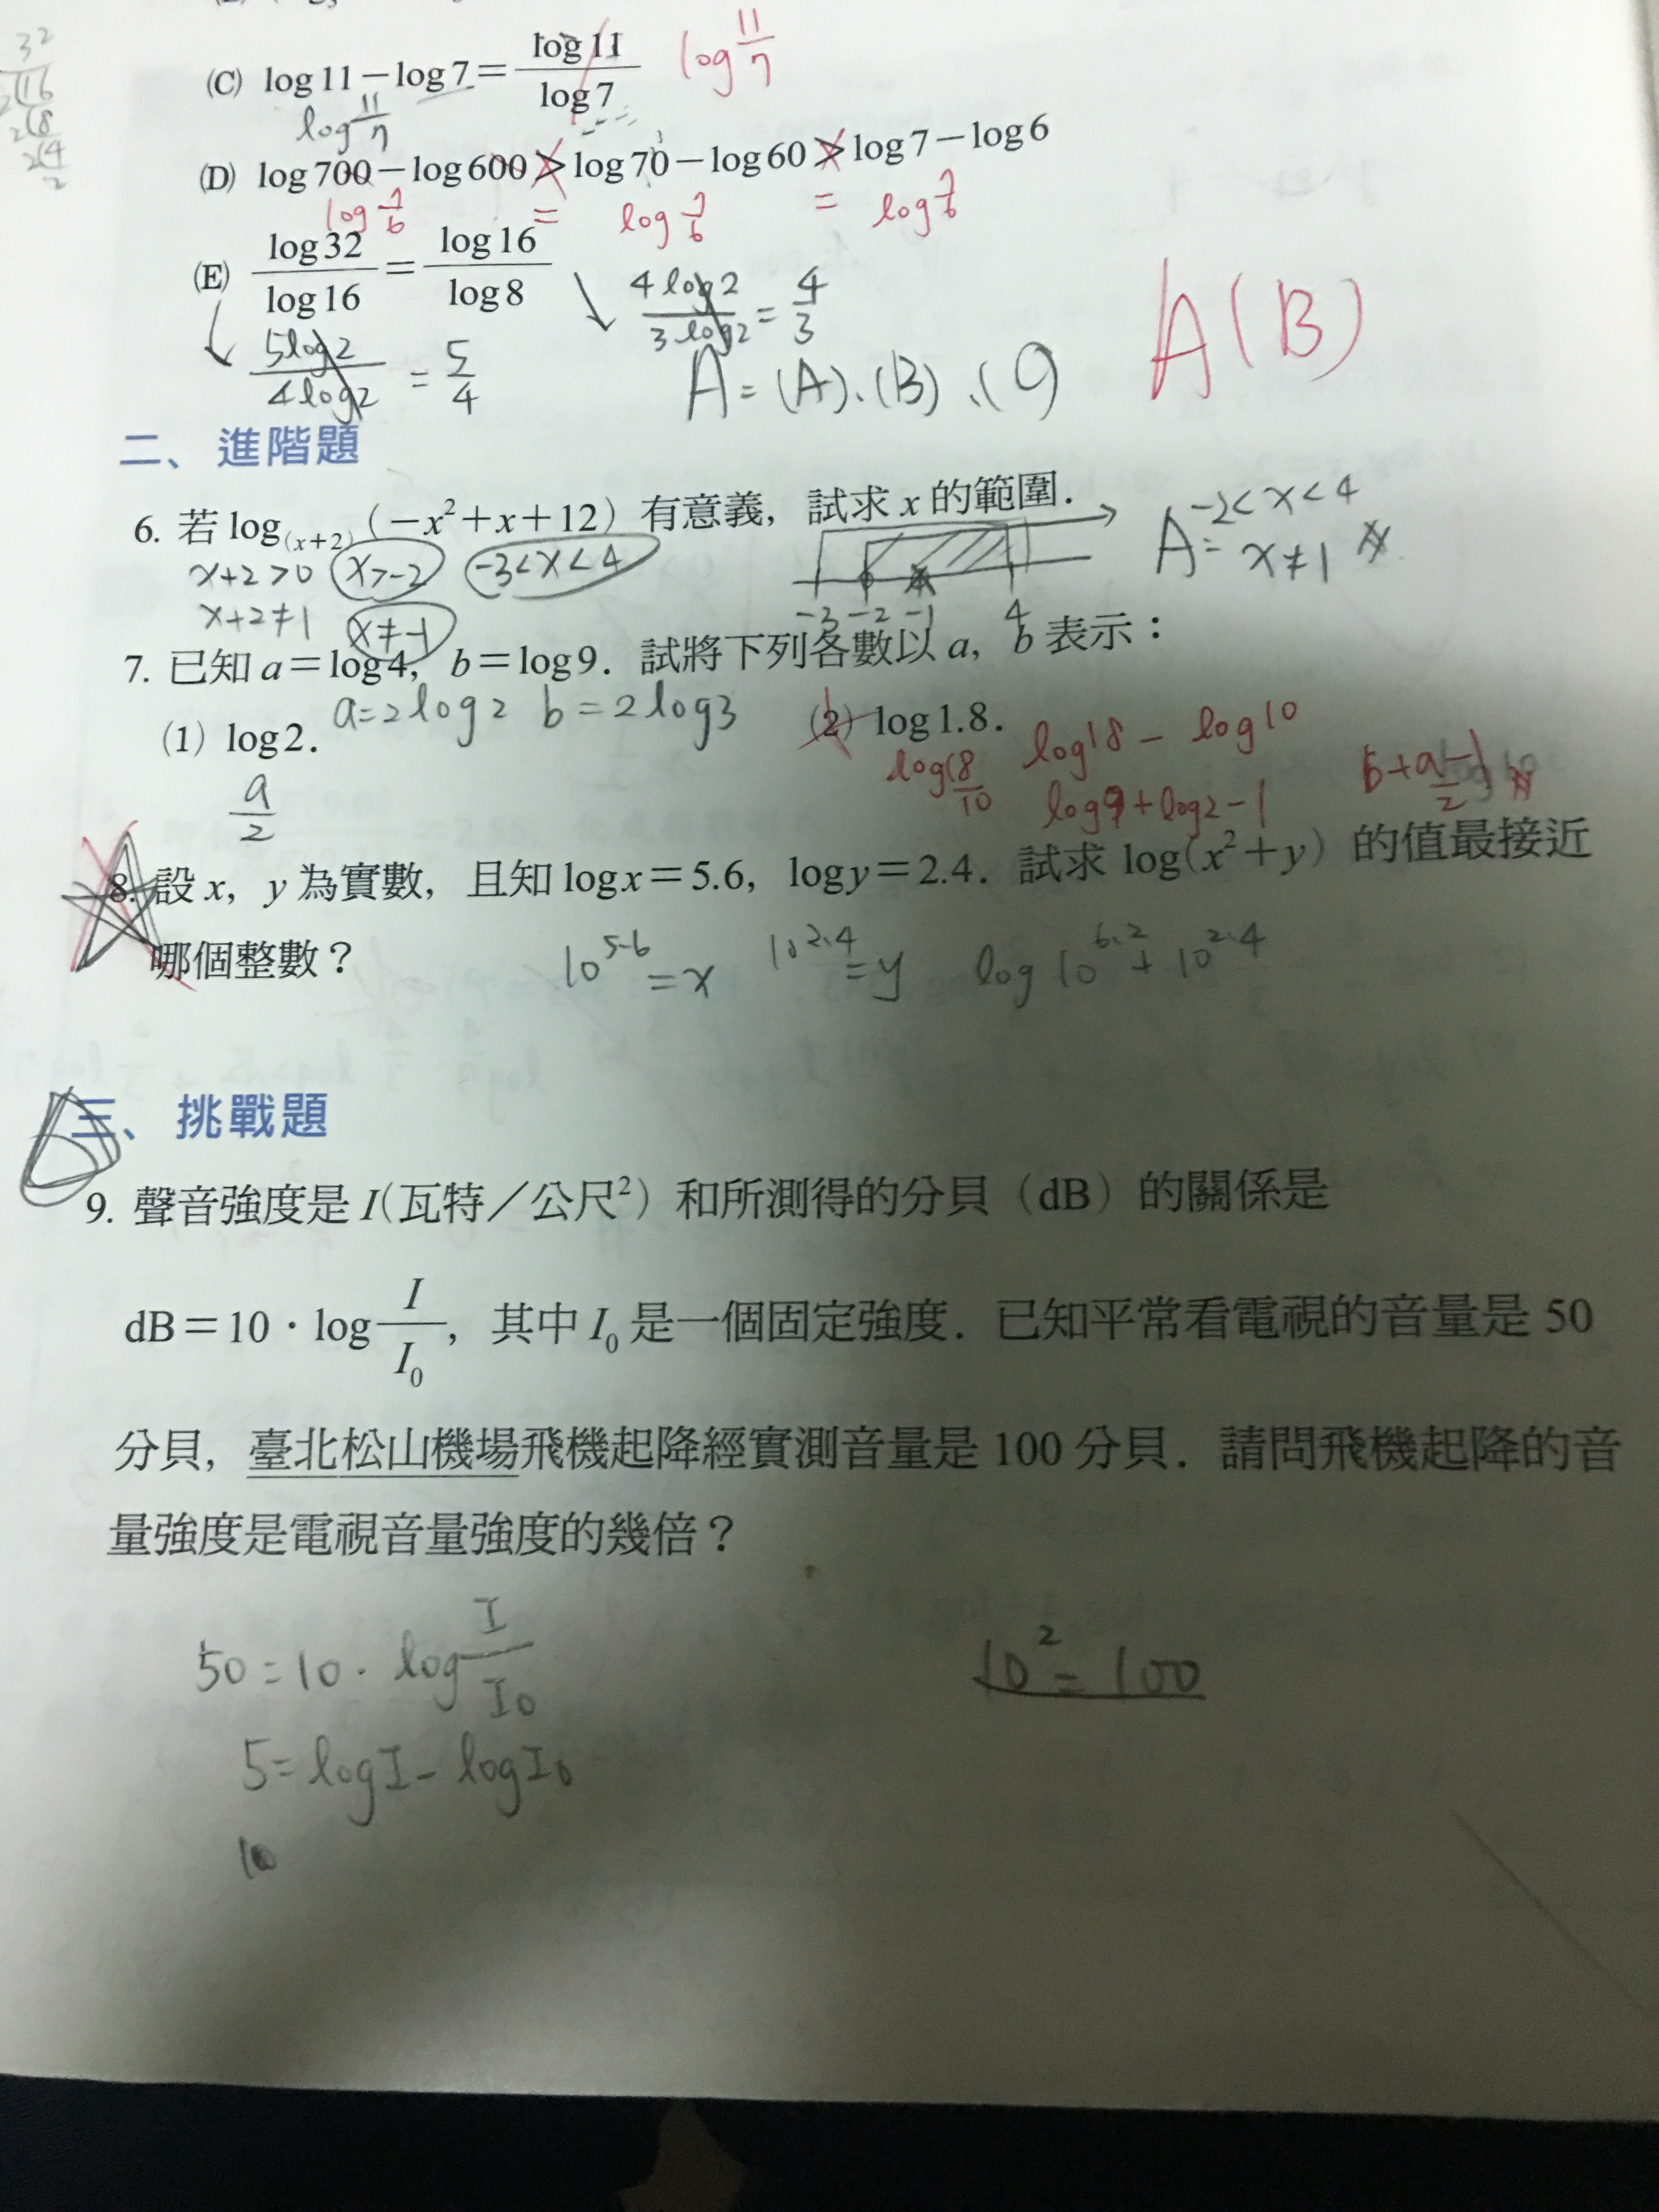 3²
2(16
2(8
2(4
2
(C) log 11 − log 7 = log 11 / log 7 log 11/7
log 11/7
(D) log 700 − log 600 > log 70 − log 60 > log 7 − log 6
log 7/6 = log 7/6 = log 7/6
(E) log 32 / log 16 = log 16 / log 8
4 log 2 / 3 log 2 = 4/3
5 log 2 / 4 log 2 = 5/4
A = (A)、(B)、(C)
A(B)
二、進階題
6. 若 log₍ₓ₊₂₎ (−x²+x+12) 有意義，試求 x 的範圍．
x+2>0 x>-2 -3<x<4
x+2≠1 x≠-1
-3 -2 -1 4
A = -2<x<4
x≠1
7. 已知 a = log 4，b = log 9．試將下列各數以 a，b 表示：
a=2log2 b=2log3
(1) log 2． (2) log 1.8．
a/2
log 18/10 log18 − log10
log9 + log2 − 1
b + a/2 − 1
8. 設 x，y 為實數，且知 log x = 5.6，log y = 2.4．試求 log(x²+y) 的值最接近
哪個整數？
10^5.6 = x 10^2.4 = y log 10^6.2 + 10^2.4
三、挑戰題
9. 聲音強度是 I(瓦特／公尺²) 和所測得的分貝（dB）的關係是
dB = 10 · log I/I₀，其中 I₀ 是一個固定強度．已知平常看電視的音量是 50
分貝，臺北松山機場飛機起降經實測音量是 100 分貝．請問飛機起降的音
量強度是電視音量強度的幾倍？
50 = 10 · log I/I₀
10² = 100
5 = logI − logI₀